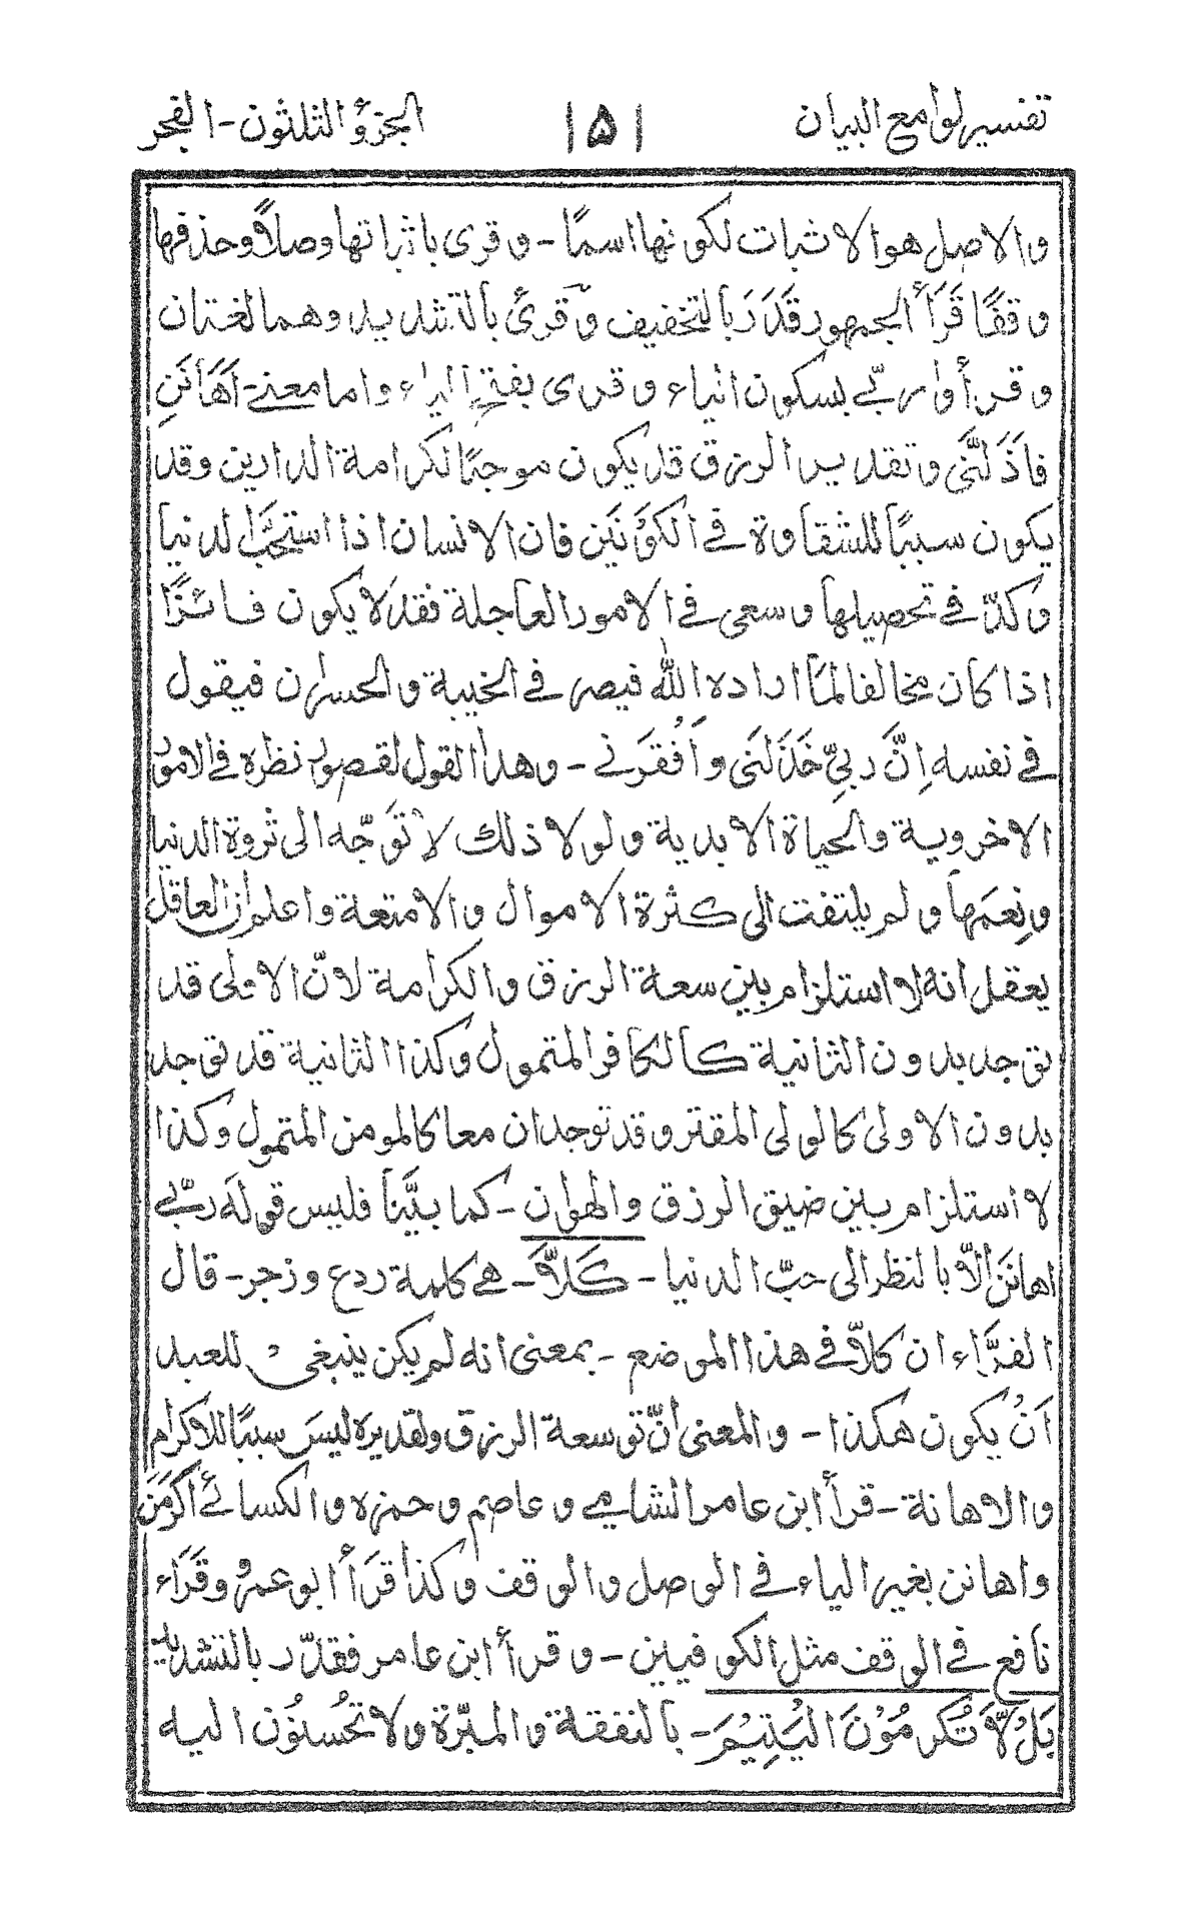 تفسير لوامع البيان
١٥١
الجزؤ الثلثون - الفجر
والاصل هو الاثبات لكونها اسمًا - وقرى باثباتها وصلاً وحذفها
وقفًا قَرَأ الجمهور قَدَرَ بالتخفيف وقرئ بالتشديد وهما لغتان
وقرأ وا ربّي بسكون الياء وقرى بفتح الياء واما معنى اَهَانَنِ
فاذَلَّنَى وتقدير الرزق قد يكون موجبًا لكرامة الدارين وقد
يكون سببًا للشقاوة في الكَوْنَيْنِ فان الانسان اذا استحَبَّ الدنيا
وكدّ في تحصيلها وسعى في الامور العاجلة فقد لا يكون فائزًا
اذا كان مخالفا لما اراده الله فيصر في الخيبة والخسران فيقول
في نفسه اِنَّ ربيّ خَذَلَنَى وَاَفْقَرَنى - وهذا القول لقصور نظره في الامور
الاخروية والحياة الابدية ولولا ذلك لا تَوَجّه الى ثروة الدنيا
ونِعَمِها ولم يلتفت الى كثرة الاموال والامتعة واعلم ان العاقل
يعقل انه لا استلزام بين سعة الرزق والكرامة لانّ الاولى قد
توجد بدون الثانية كالكافر المتمول وكذا الثانية قد توجد
بدون الاولى كالولى المقتر وقد توجدان معا كالمومن المتمول وكذا
لا استلزام بين ضيق الرزق والهوان - كما بيَّنا فليس قوله ربّي
اهانَنِ الاّ بالنظر الى حبّ الدنيا - كَلاَّ - هي كلمة ردع وزجر - قال
الفرَّاء ان كلاّ في هذا الموضع - بمعنى انه لم يكن ينبغى للعبد
اَنْ يكون هكذا - والمعنى انّ توسعة الرزق وتقديره ليسَ سببًا للاكرام
والاهانة - قرأ ابن عامر الشامي وعاصم وحمزه والكسائي اكرَمَنِ
واهانن بغير الياء في الوصل والوقف وكذا قَرَأ ابو عمرو وقَرَاء
نافع في الوقف مثل الكوفيين - وقرأ ابن عامر فقدّر بالتشديد
بَلْ لاَّ تُكرِمُوْنَ الْيَتِيْمَ - بالنفقة والمبرّة ولا تُحْسنُوْن اليه